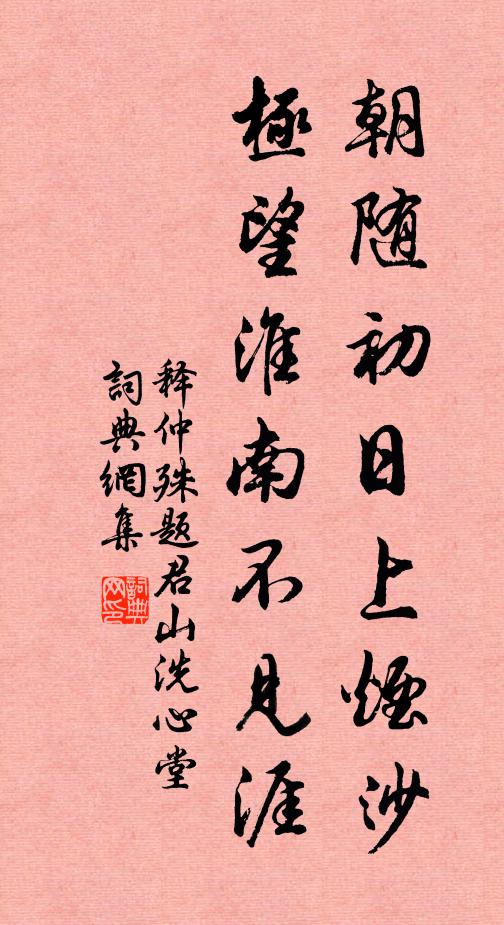 朝随初日上煙沙
極望淮南不見涯
释仲殊题君山洗心堂
詞典網集
詞典网印